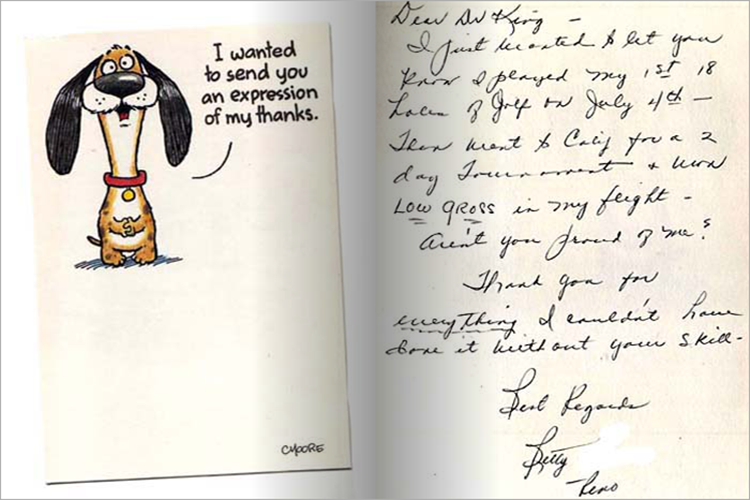 I wanted
to send you
an expression
of my thanks.
CMOORE
Dear Dr King -
I just wanted to let you
know I played my 1st 18
holes of Golf on July 4th -
Then went to Calif for a 2
day Tournament & won
LOW GROSS in my flight -
Aren't you proud of me?
Thank you for
everything I couldn't have
done it without your skill-
Best Regards
Betty
Reno